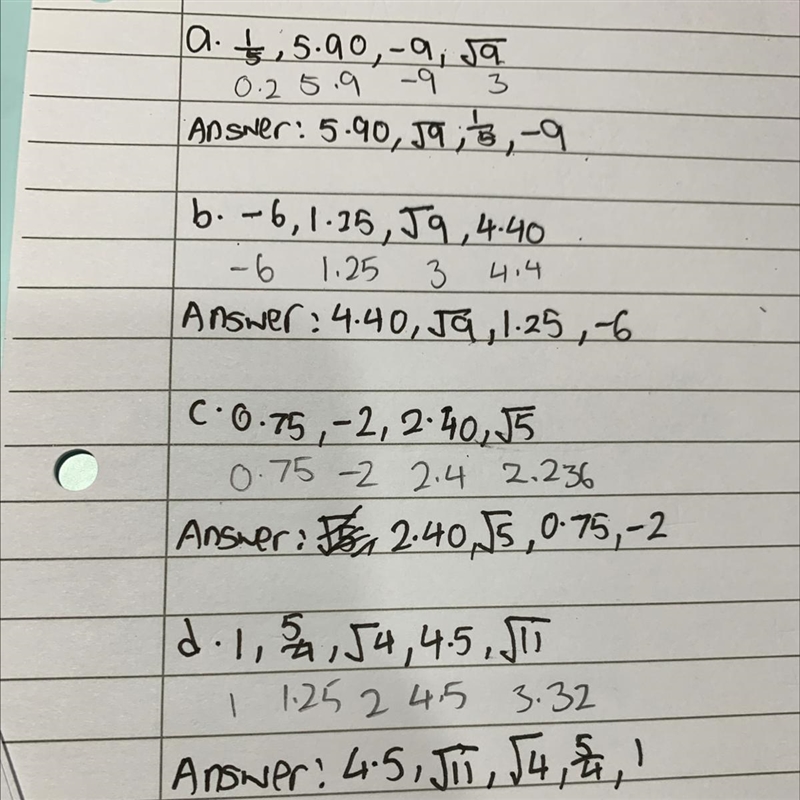 a. 1/5, 5.90, -9, √9
0.2 5.9 -9 3
Answer: 5.90, √9, 1/5, -9
b. -6, 1.25, √9, 4.40
-6 1.25 3 4.4
Answer: 4.40, √9, 1.25, -6
c. 0.75, -2, 2.40, √5
0.75 -2 2.4 2.236
Answer: 2.40, √5, 0.75, -2
d. 1, 5/4, √4, 4.5, √11
1 1.25 2 4.5 3.32
Answer: 4.5, √11, √4, 5/4, 1